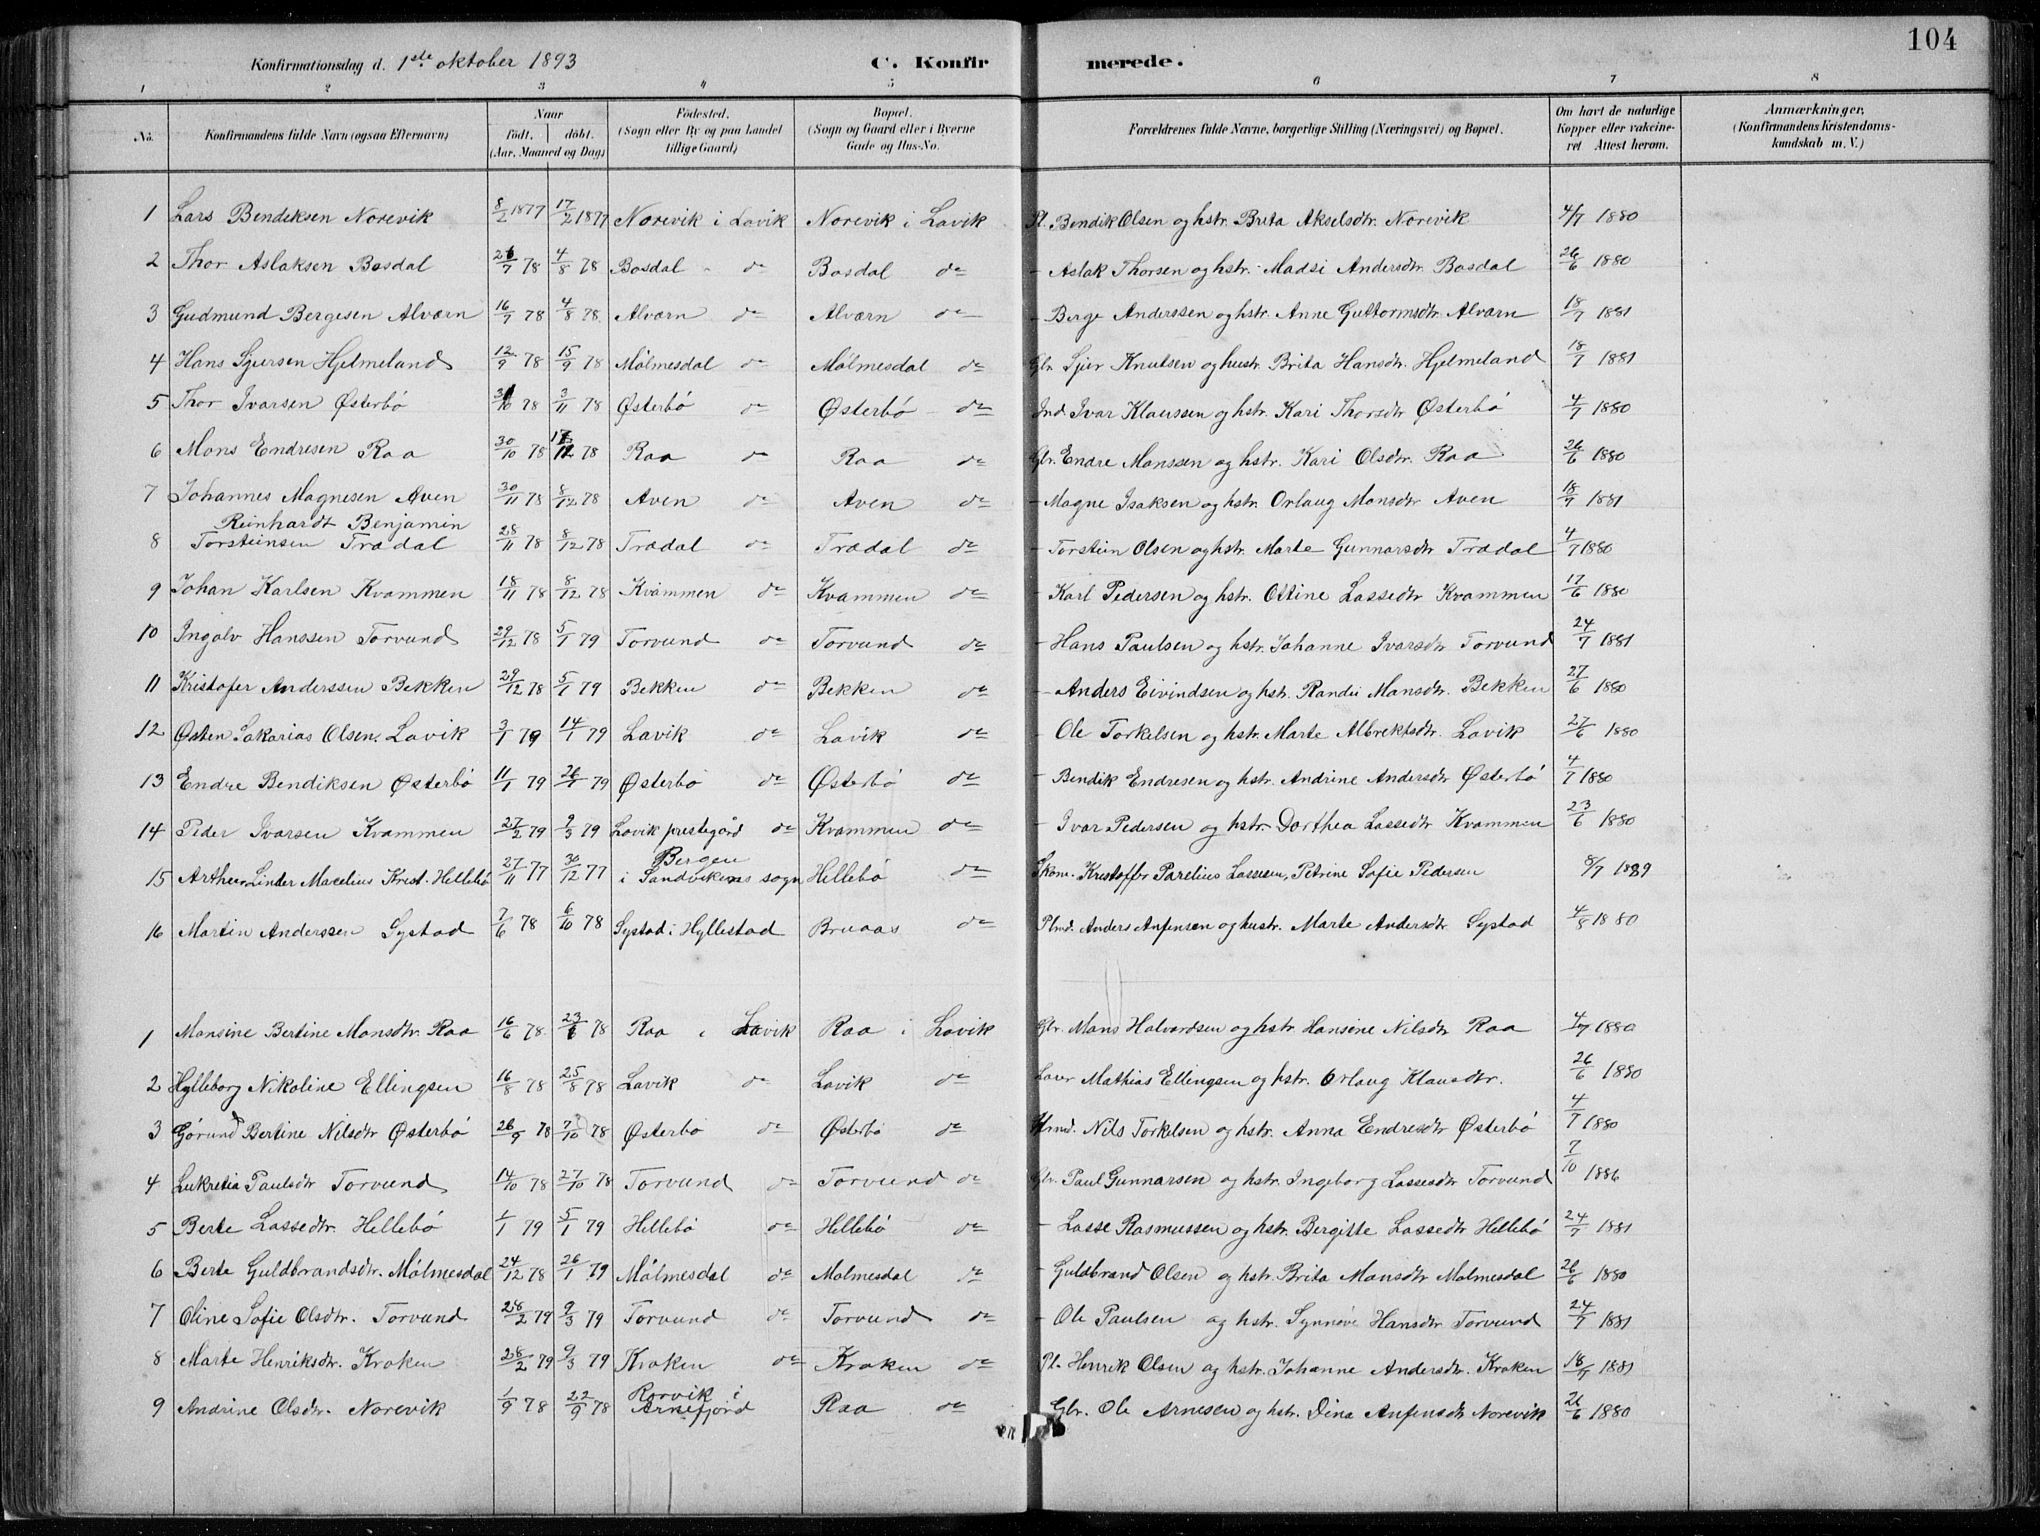 104
Konfirmationsdag d. 1ste oktober 1893 C. Konfir merede.
1 2 3 4 5 6 7 8
No. Konfirmandens fulde Navn (ogsaa Efternavn) Naar födt. döbt. (Aar, Maaned og Dag) Födested. (Sogn eller By og paa Landet tillige Gaard) Bopæl. (Sogn og Gaard eller i Byerne Gade og Hus-No. Forældrenes fulde Navne, borgerlige Stilling (Næringsvei) og Bopæl. Om havt de naturlige Kopper eller vakcineret Attest herom. Anmærkninger, (Konfirmandens Kristendomskundskab m. V.)
1 Lars Bendiksen Norevik 8/2 1877 17/2 1877 Norevik i Lavik Norevik i Lavik Pl. Bendik Olsen og hstr. Brita Akselsdtr. Norevik 4/7 1880
2 Thor Aslaksen Bosdal 26/7 78 4/8 78 Bosdal do Bosdal do - Aslak Thorsen og hstr. Madsi Andersdtr Bosdal 26/6 1880
3 Gudmund Bergesen Alværn 16/7 78 4/8 78 Alværn do Alværn do - Berge Anderssen og hstr. Anne Guttormsdtr. Alværn 18/7 1881
4 Hans Sjursen Hjelmeland 12/9 78 15/9 78 Mólmesdal do Mólmesdal do Gbr. Sjur Knutsen og hustr. Brita Hansdtr. Hjelmeland 18/7 1881
5 Thor Ivarsen Østerbó 31/10 78 3/11 78 Østerbó do Østerbó do Ind. Ivar Klaussen og hstr. Kari Thorsdtr Østerbó 4/7 1880
6 Mons Endresen Raa 30/10 78 17/11 78 Raa do Raa do Gbr. Endre Monssen og hstr. Kari Olsdtr. Raa 26/6 1880
7 Johannes Magnesen Aven 30/11 78 8/12 78 Aven do Aven do - Magne Isaksen og hstr. Orlaug Monsdtr Aven 18/7 1881
8 Reinhardt Benjamin Torsteinsen Trædal 28/11 78 8/12 78 Trædal do Trædal do - Torstein Olsen og hstr. Marte Gunnarsdtr Trædal 4/7 1880
9 Johan Karlsen Kvammen 18/11 78 8/12 78 Kvammen do Kvammen do - Karl Pedersen og hstr. Ottine Lassedtr Kvammen 17/6 1880
10 Ingolv Hanssen Torvund 29/12 78 5/1 79 Torvund do Torvund do - Hans Paulsen og hstr. Johanne Ivarsdtr Torvund 24/7 1881
11 Kristofer Anderssen Bekken 29/12 78 5/1 79 Bekken do Bekken do - Anders Eivindsen og hstr. Randei Monsdtr. Bekken 27/6 1880
12 Østen Sakarias Olsen. Lavik 3/1 79 14/1 79 Lavik do Lavik do - Ole Torkelsen og hstr. Marte Albrektsdtr. Lavik 27/6 1880
13 Endre Bendiksen Østerbó 11/1 79 26/1 79 Østerbó do Østerbó do - Bendik Endresen og hstr. Andrine Andersdtr Østerbó 4/7 1880
14 Peder Ivarsen Kvammen 27/2 79 9/3 79 Lavik prestegård do Kvammen do - Ivar Pedersen og hstr. Dorthea Lassedtr Kvammen 23/6 1880
15 Arthur Linder Macelius Krist. Hellebó 27/11 77 30/12 77 Bergen i Sandvikens sogn Hellebó do Skom. Kristoffer Parelius Lassesen, Petrine Sofie Pedersen 8/7 1889
16 Martin Anderssen Systad 7/6 78 6/10 78 Systad i Hyllestad Bruaas do Plmd. Anders Anfinsen og hustr. Marte Andersdtr Systad 4/8 1880
1 Monsine Bertine Monsdtr. Raa 16/6 78 23/6 78 Raa i Lavik Raa i Lavik Gbr. Mons Halvardsen og hstr. Hansine Nilsdtr Raa 4/7 1880
2 Hylleborg Nikoline Ellingsen 16/8 78 25/8 78 Lavik do Lavik do Mathias Ellingsen og hstr. Orlaug Klausdtr. 26/6 1880
3 Gjórund Bertine Nilsdtr Østerbó 26/9 78 7/10 78 Østerbo do Østerbó do Hmd. Nils Torkelsen og hstr. Anna Endresdtr Østerbó 4/7 1880
4 Lukretia Paulsdtr Torvund 14/10 78 27/10 78 Torvund do Torvund do Gbr. Paul Gunnarsen og hstr. Ingeborg Lassesdtr Torvund 7/10 1886
5 Berte Lassedtr. Hellebó 1/1 79 5/1 79 Hellebó do Hellebó do - Lasse Rasmussen og hstr. Bergitte Lassedtr Hellebó 24/7 1881
6 Berte Guldbrandsdtr. Mólmesdal 24/12 78 26/1 79 Mólmesdal do Molmesdal do - Guldbrand Olsen og hstr. Brita Monsdtr Molmesdal 26/6 1880
7 Oline Sofie Olsdtr. Torvund 28/2 79 9/3 79 Torvund do Torvund do - Ole Paulsen og hstr. Synnóve Hansdtr Torvund 24/7 1881
8 Marte Henriksdtr. Kroken 28/2 79 9/3 79 Kroken do Kroken do Pl. Henrik Olsen og hstr. Johanne Andersdtr. Kroken 18/7 1881
9 Andrine Olsdtr. Norevik 1/9 78 22/9 78 Rørvik i Arnefjord Raa do Gbr. Ole Arnesen og hstr. Dina Anfinsdtr Norevik 26/6 1880